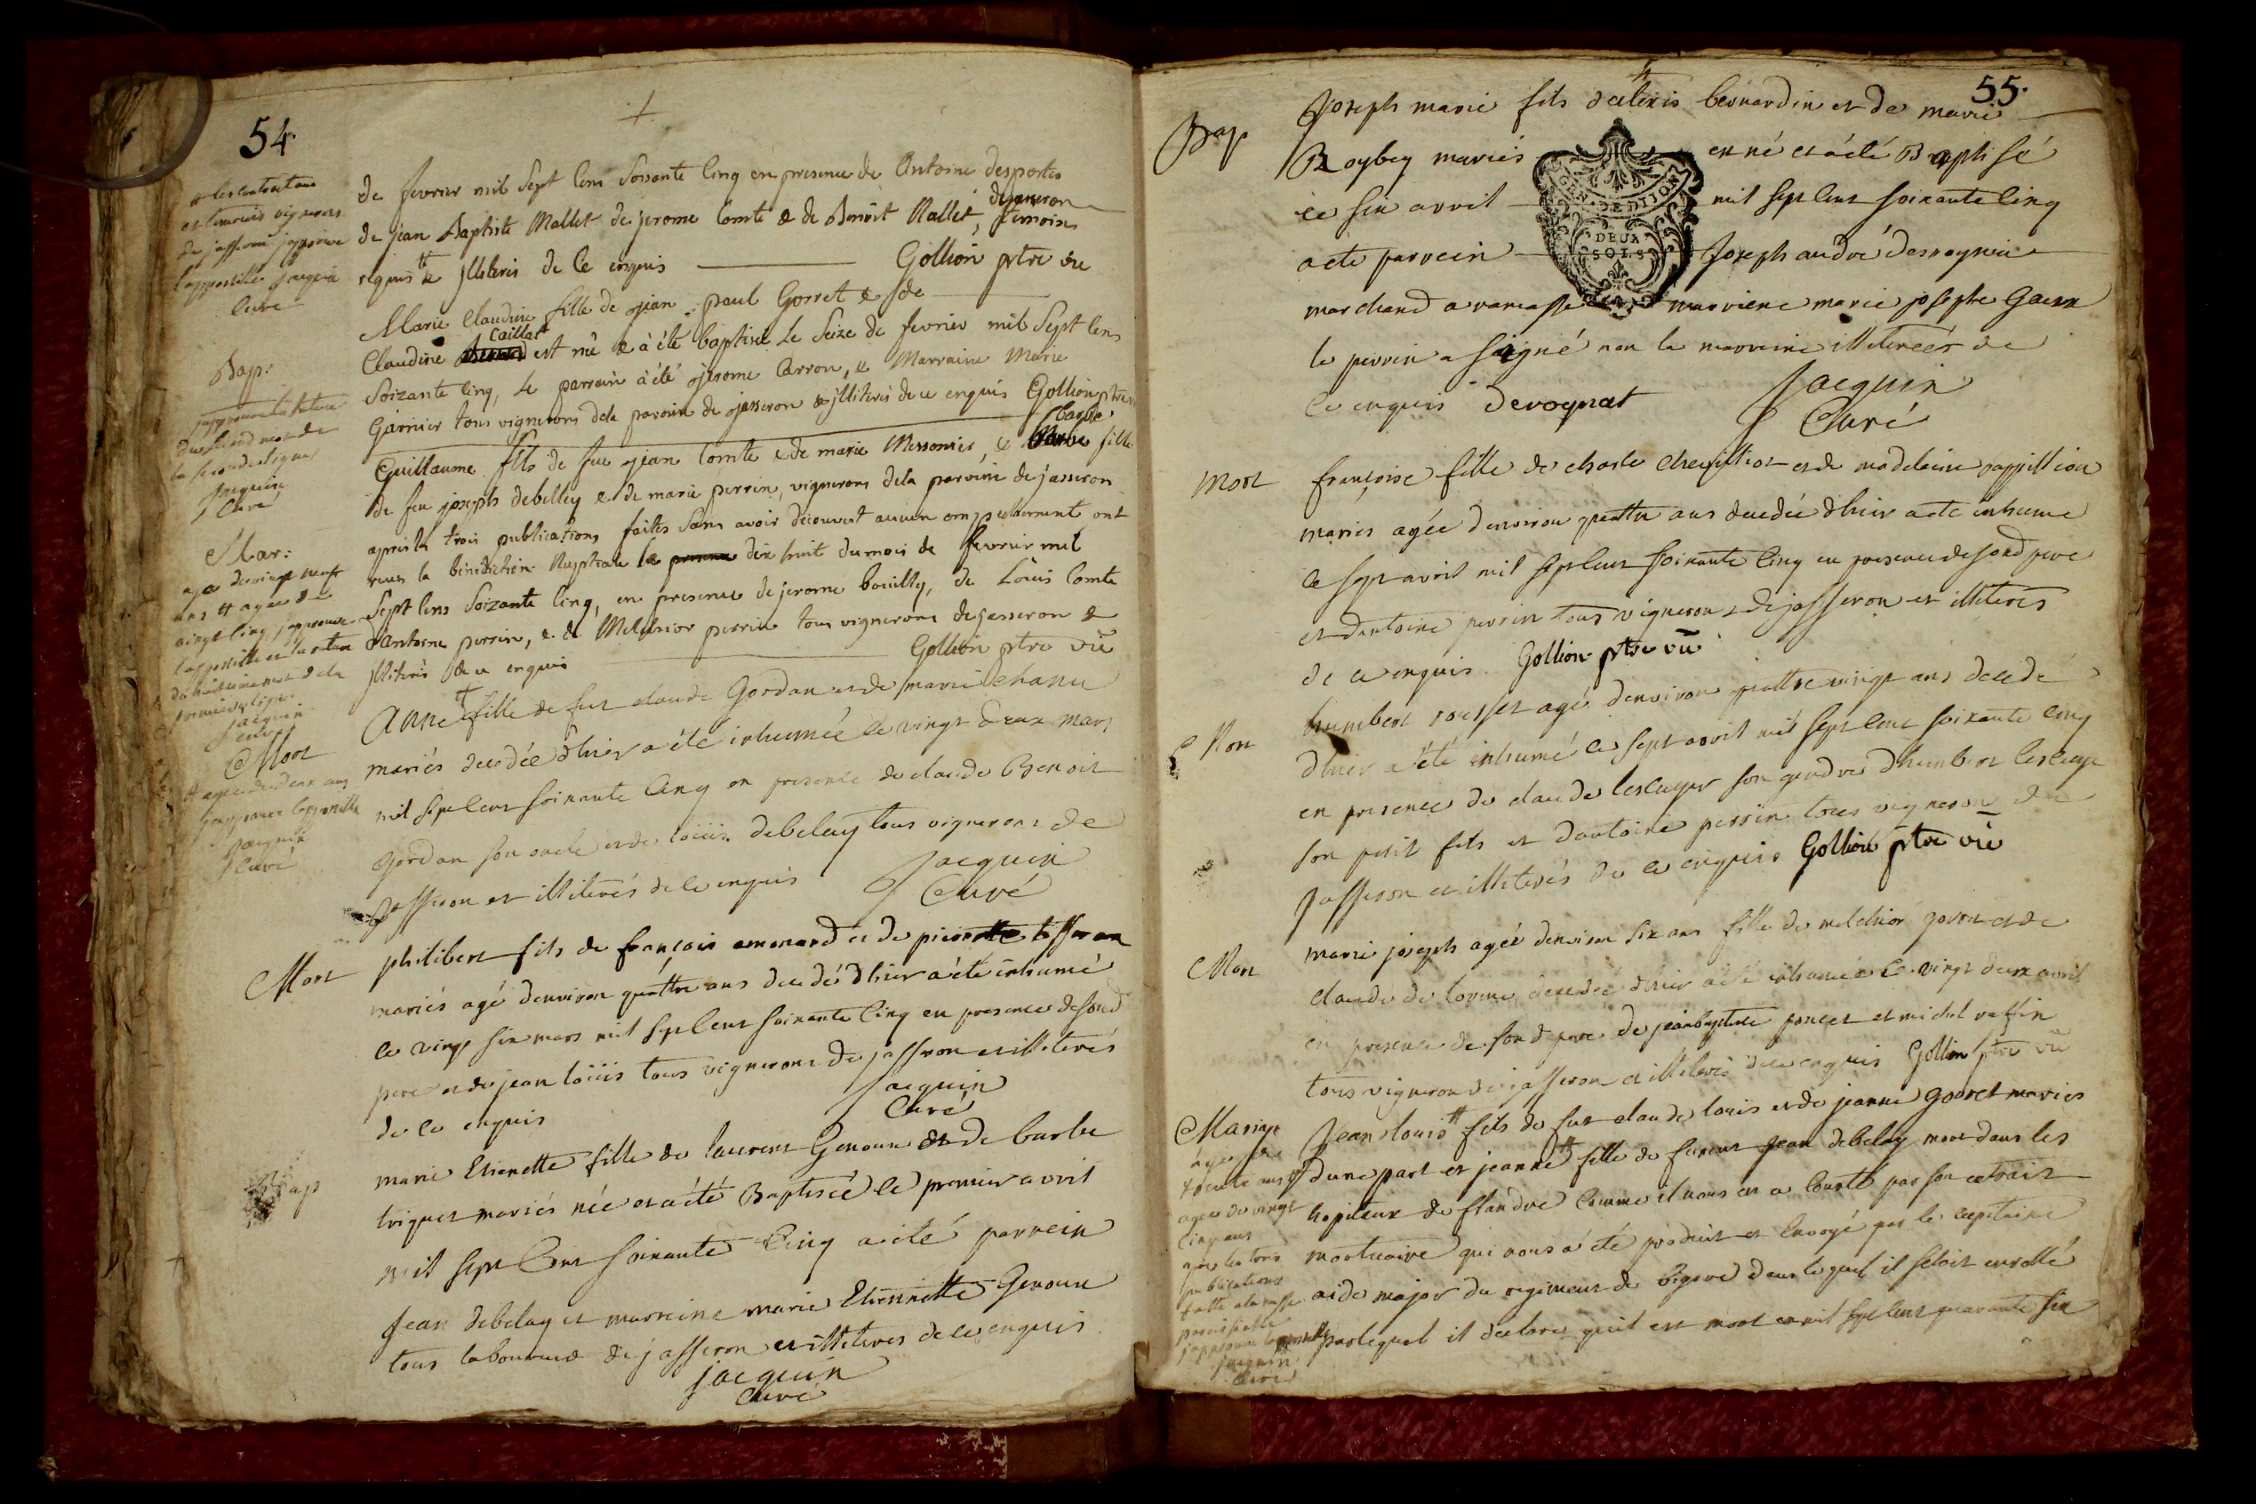 54
de fevrier mil sept Cens Soisante Cinq en presence de Antoine desportes
de jean Baptiste Mallet de jerome Comte & de Benoit Mallet, de jasseron temoins
requis & jlliteris de Ce enquis Gollion ptre vre
Bap:
Marie Claudine fille de jean paul Gorret & de
Claudine Caillat est né & à été baptisée Le Seize de fevrier mil Sept Cens
Soizante Cinq, Le parrain à été jerome Carron, & Marraine Marie
Garnier tous vignerons dela paroisse de jasseron & jlliteris de ce enquis Gollion ptre
du second mot de
la seconde ligne
Jacquin
Curé
Mar:
Guillaume fils de feu jean Comte & de marie Messonier, & Barbe fille
de feu joseph debelley & de marie perrin, vignerons dela paroisse de jasseron
après les trois publications faites Sans avoir decouvert aucun empechement ont
receu la bénédiction Nuptiale le dix huit du mois de fevrier mil
Sept Cens Soizante Cinq, en presence de jerome bouilly, de Loüis Comte
d'Antoine perrin, & de Melchior perrin tous vignerons de jasseron &
jlliteris de ce enquis Gollion ptre vre
agé de vingt neuf
ans et agée de
vingt Cinq j'approuve
l'appostille
Jacquin
Curé
Mort
Anne fille de feu claude Gordan et de marie chanu
mariés decedée d'hier a été inhumée le vingt deux mars
mil sept Cent soixante Cinq en presence de claude Benoit
Gordan son oncle et de loüis debelay tous vignerons de
Jasseron et illiterés de ce enquis Jacquin
Curé
agée de deux ans
j'approuve l'appostille
Jacquin
Curé
Mort
philibert fils de francois amonard et de pierrette tesseran
mariés agé denviron quattre ans decedé d'hier a été inhumé
le vingt six mars mil sept Cent soixante Cinq en presence de sond
pere et de jean loüis tous vignerons de jasseron et illiterés
de ce enquis Jacquin
Curé
Bap
marie Etienette fille de laurent Genoux et de barbe
triquet mariés née et a été Baptisée le premier avril
mil sept Cent soixante Cinq a été parrein
Jean debelay et marreine marie Etiennette Genoux
tous laboureurs de jasseron et illiterés de ce enquis
jacquin
Curé
55.
Bap
Joseph marie fils d'alexis bernardin et de marie
Roybey mariés est né et a été Baptisé
ce six avril mil sept Cent soixante Cinq
a été parrein Joseph andré
marchand a marreine marie josephe
le perrein a signé non la marreine illiterée de
Ce enquis Devoynat Jacquin
Curé
GEN. DE DIJON
DEUX
SOLS
Mort
francoise fille de charle et de madelaine pappillion
mariés agée denviron quattre ans decedée d'hier a été inhumée
le sept avril mil sept Cent soixante Cinq en presence de sond pere
et d'antoine perrin tous vignerons de jasseron et illiterés
de ce enquis Gollion ptre vre
Mort
humbert rousset agé denviron quattre vingt ans decedé
d'hier a été inhumé le sept avril mil sept Cent soixante Cinq
en presence de claude lescuyer son gendre d'humbert lescuyer
son petit fils et d'antoine perrin tous vignerons de
Jasseron et illiterés de ce enquis Gollion ptre vre
Mort
marie joseph agée denviron six ans fille de melchior et de
claude decedée d'hier a été inhumée le vingt deux avril
en presence de sond pere de jean baptiste poncet et michel
tous vignerons de jasseron et illiterés de ce enquis Gollion ptre vre
Mariage
Jean loüis fils de feu claude louis et de jeanne gorret mariés
d'une part et jeanne fille de jean debelay mort dans les
hopitaux de flandre Comme il nous en a Consté par son extrait
mortuaire qui nous a été produit et Envoyé par le capitaine
aide major du regiment de bigore dans lequel il s'etoit enrollé
par lequel il declare qu'il est mort en mil sept Cent quarante six
agée de vingt
Cinq ans
publications
Jacquin
Curé